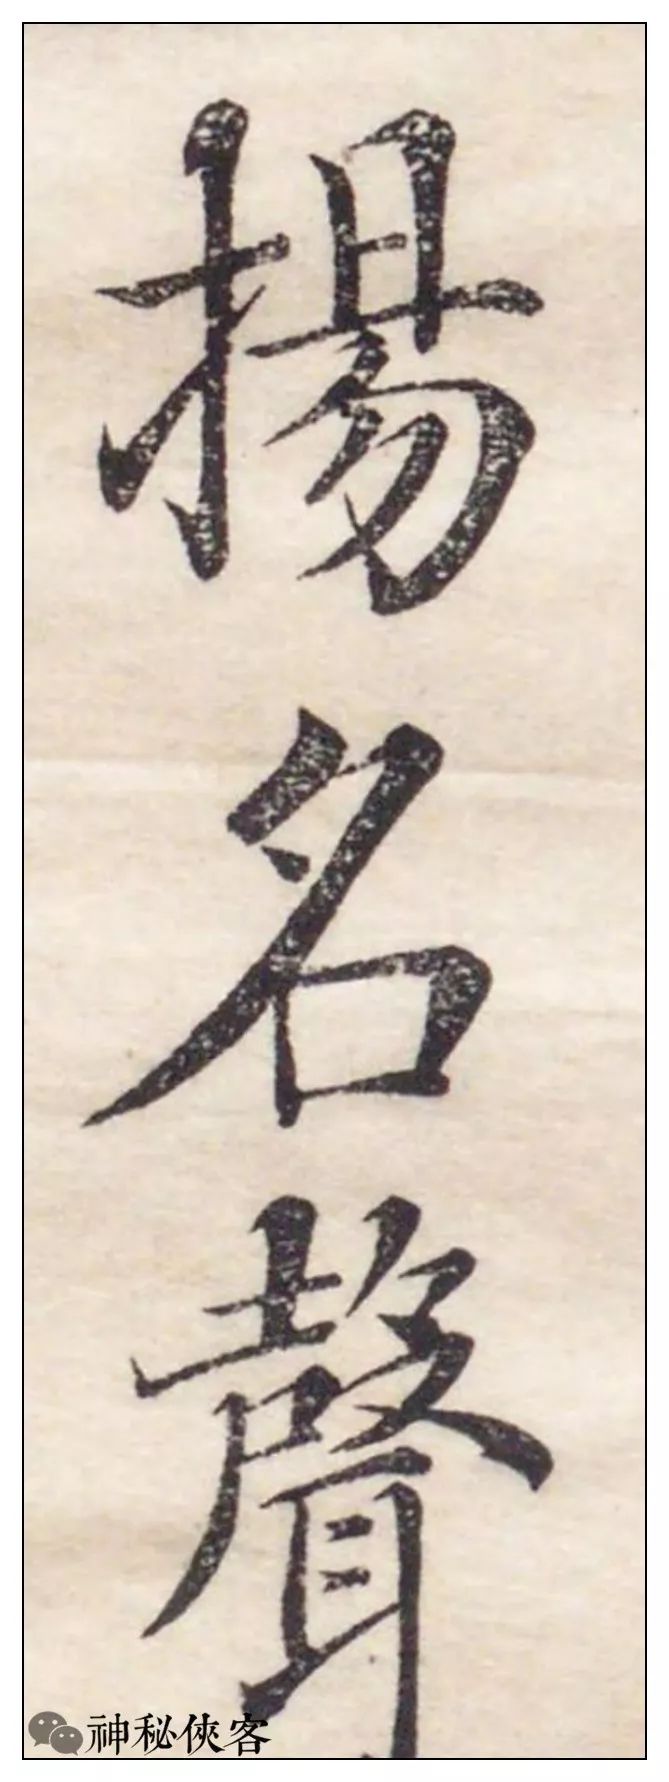 揚名聲
神秘俠客